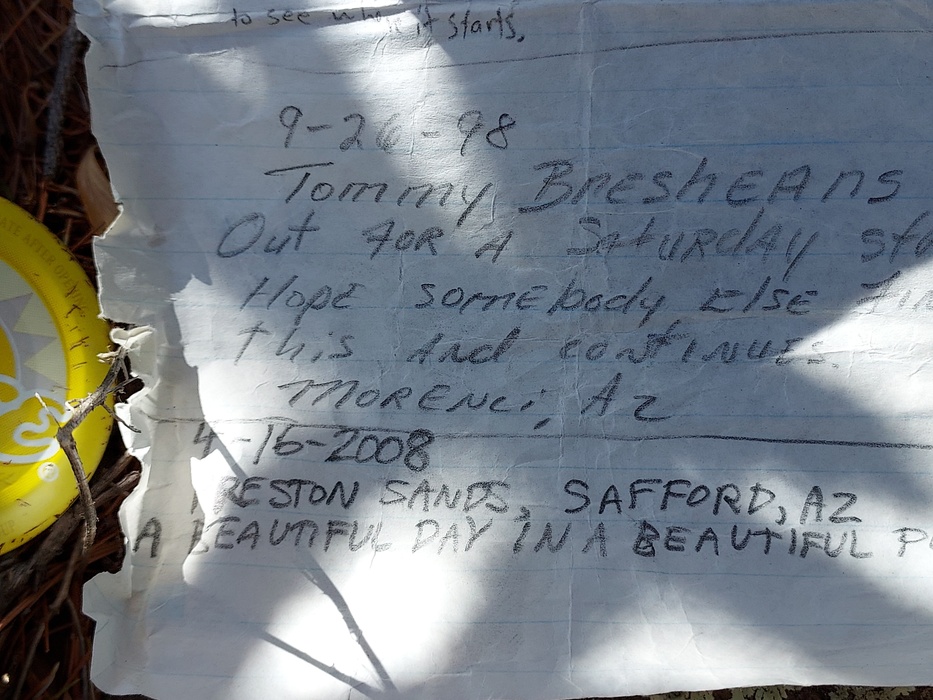 to see where it starts.
9-26-98
Tommy Bresheans
Out FOR A Saturday
Hope somebody Else
This And continues.
MORENCi, AZ
4-16-2008
PRESTON SANDS, SAFFORD, AZ
A BEAUTIFUL DAY IN A BEAUTIFUL